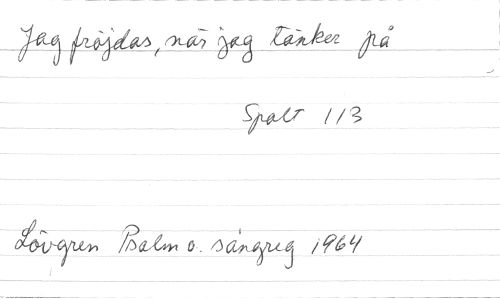 Jag fröjdas, när jag tänker på
Spalt 113
Lövgren Psalm o. sångreg 1964